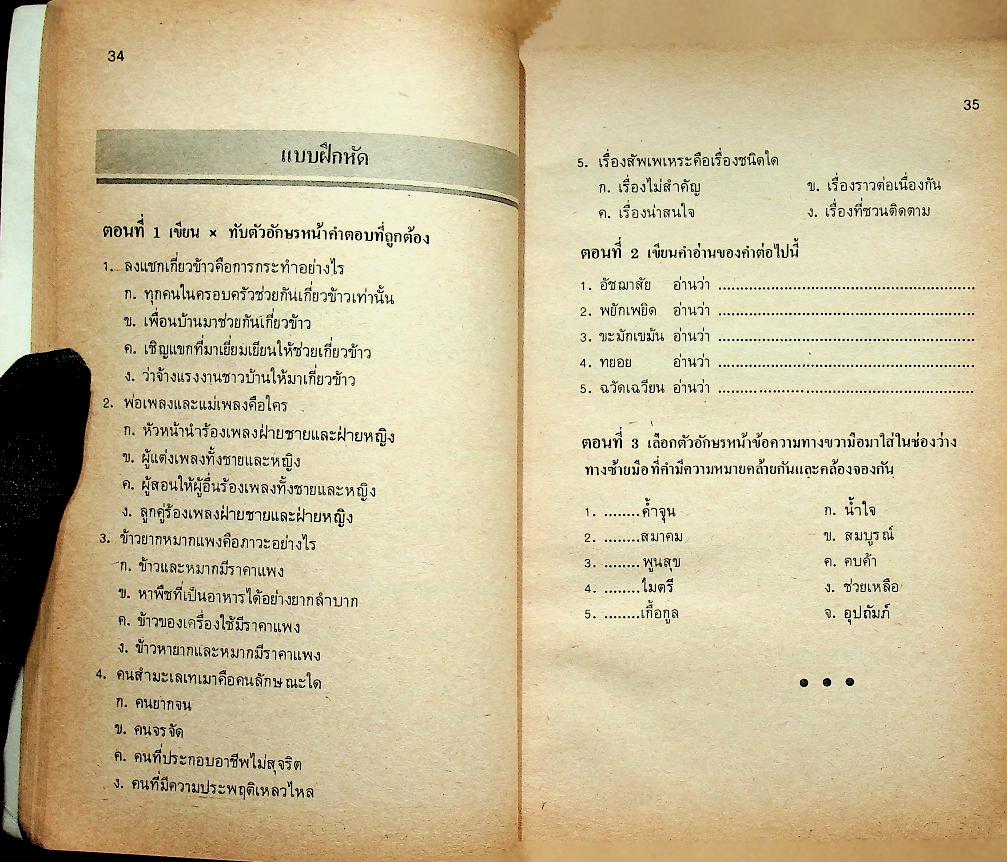 34
แบบฝึกหัด
ตอนที่ 1 เขียน × ทับตัวอักษรหน้าคำตอบที่ถูกต้อง
1. ลงแขกเกี่ยวข้าวคือการกระทำอย่างไร
ก. ทุกคนในครอบครัวช่วยกันเกี่ยวข้าวเท่านั้น
ข. เพื่อนบ้านมาช่วยกันเกี่ยวข้าว
ค. เชิญแขกที่มาเยี่ยมเยียนให้ช่วยเกี่ยวข้าว
ง. ว่าจ้างแรงงานชาวบ้านให้มาเกี่ยวข้าว
2. พ่อเพลงและแม่เพลงคือใคร
ก. หัวหน้านำร้องเพลงฝ่ายชายและฝ่ายหญิง
ข. ผู้แต่งเพลงทั้งชายและหญิง
ค. ผู้สอนให้ผู้อื่นร้องเพลงทั้งชายและหญิง
ง. ลูกคู่ร้องเพลงฝ่ายชายและฝ่ายหญิง
3. ข้าวยากหมากแพงคือภาวะอย่างไร
ก. ข้าวและหมากมีราคาแพง
ข. หาพืชที่เป็นอาหารได้อย่างยากลำบาก
ค. ข้าวของเครื่องใช้มีราคาแพง
ง. ข้าวหายากและหมากมีราคาแพง
4. คนสำมะเลเทเมาคือคนลักษณะใด
ก. คนยากจน
ข. คนจรจัด
ค. คนที่ประกอบอาชีพไม่สุจริต
ง. คนที่มีความประพฤติเหลวไหล
35
5. เรื่องสัพเพเหระคือเรื่องชนิดใด
ก. เรื่องไม่สำคัญ ข. เรื่องราวต่อเนื่องกัน
ค. เรื่องน่าสนใจ ง. เรื่องที่ชวนติดตาม
ตอนที่ 2 เขียนคำอ่านของคำต่อไปนี้
1. อัชฌาสัย อ่านว่า ..........................................................
2. พยักเพยิด อ่านว่า ..........................................................
3. ขะมักเขม้น อ่านว่า ..........................................................
4. ทยอย อ่านว่า ..........................................................
5. ฉวัดเฉวียน อ่านว่า ..........................................................
ตอนที่ 3 เลือกตัวอักษรหน้าข้อความทางขวามือมาใส่ในช่องว่าง
ทางซ้ายมือที่คำมีความหมายคล้ายกันและคล้องจองกัน
1. ........ค้ำจุน ก. น้ำใจ
2. ........สมาคม ข. สมบูรณ์
3. ........พูนสุข ค. คบค้า
4. ........ไมตรี ง. ช่วยเหลือ
5. ........เกื้อกูล จ. อุปถัมภ์
● ● ●